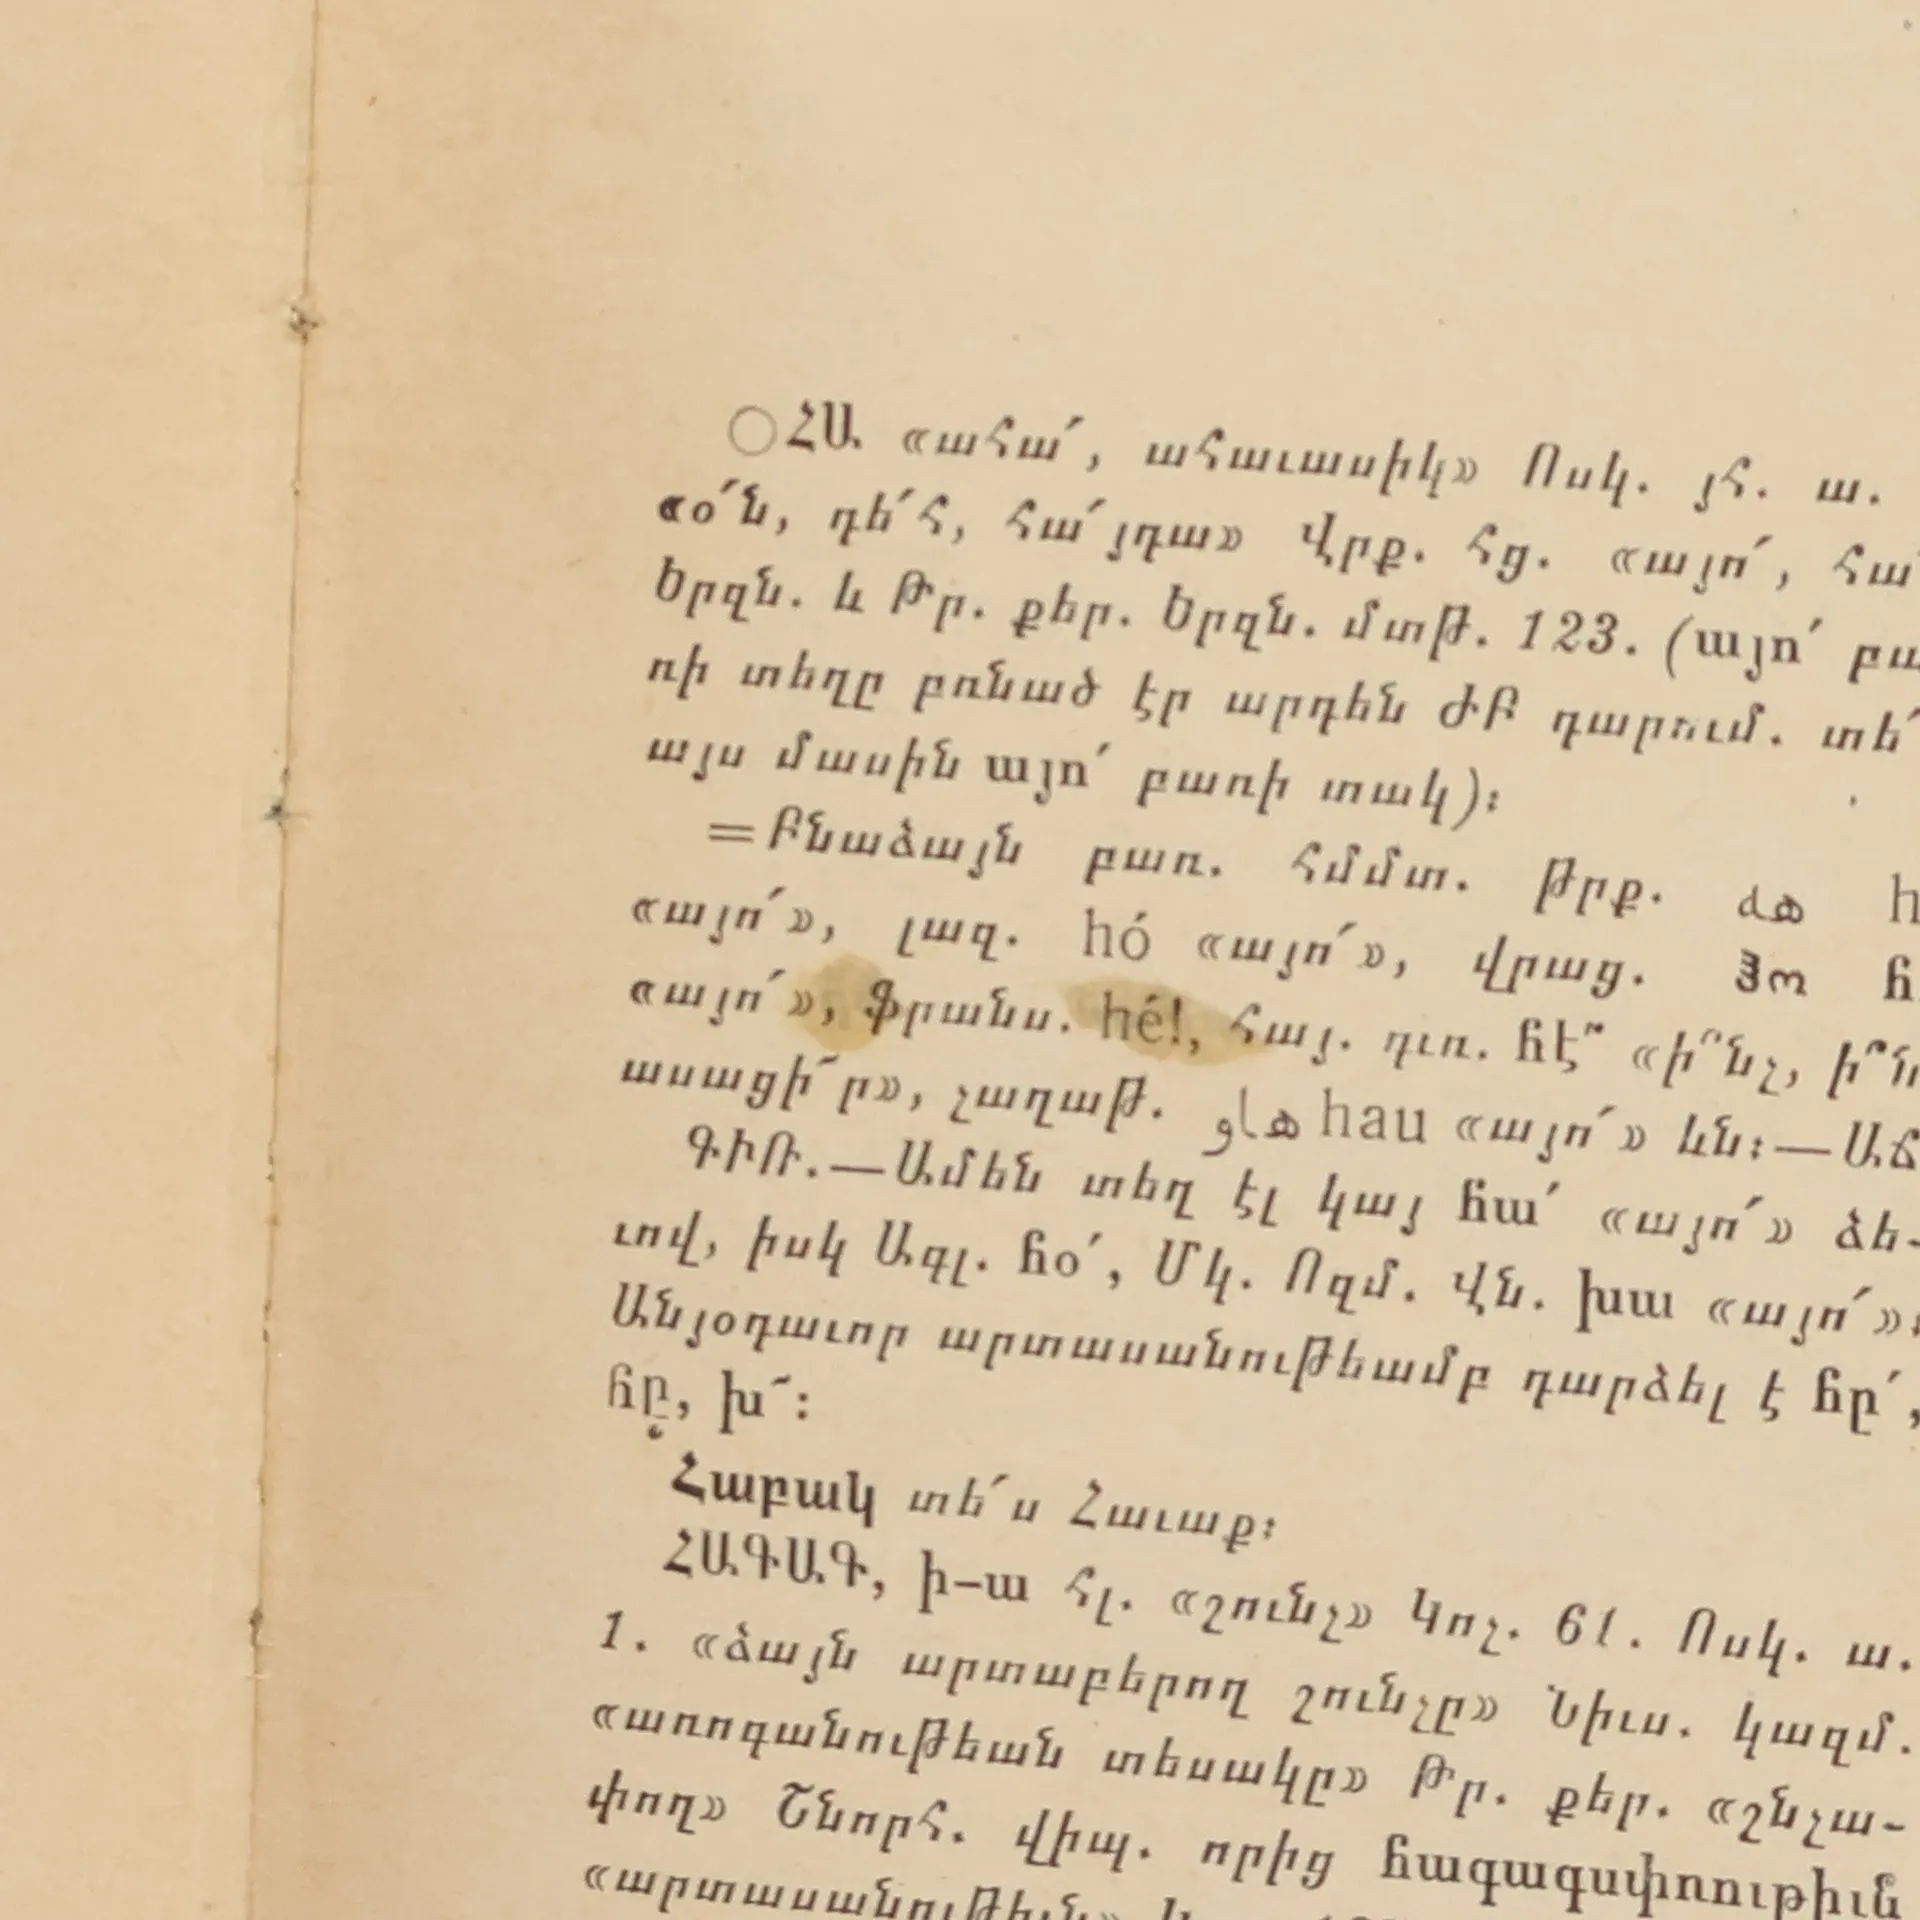 ○ՀԱ «ահա՛, ահաւասիկ» Ոսկ. յհ. ա.
«օ՛ն, դե՛հ, հա՛յդա» Վրք. հց. «այո՛, հա՛
Երզն. և Թր. քեր. Երզն. մտթ. 123. (այո՛ բա
ռի տեղը բռնած էր արդեն ԺԲ դարում. տե՛
այս մասին այո՛ բառի տակ)։
=Բնաձայն բառ. հմմտ. թրք. هـه h
«այո՛», լազ. hó «այո՛», վրաց. ჰო հ
«այո՛», ֆրանս. hé!, հայ. գւռ. հէ՞ «ի՞նչ, ի՞ն
ասացի՜ր», չաղաթ. هاو hau «այո՛» ևն։—Աճ
ԳՒՌ.—Ամեն տեղ էլ կայ հա՛ «այո՛» ձե-
ւով, իսկ Ագլ. հօ՛, Մկ. Ոզմ. Վն. խա «այո՛»։
Անյօդաւոր արտասանութեամբ դարձել է հը՛,
հը̣, խ՜։
Հաբակ տե՛ս Հաւաք։
ՀԱԳԱԳ, ի-ա հլ. «շունչ» Կոչ. 61. Ոսկ. ա.
1. «ձայն արտաբերող շունչը» Նիւս. կազմ.
«առոգանութեան տեսակը» Թր. քեր. «շնչա-
փող» Շնորհ. վիպ. որից հագագսփռութիւն
«արտասանութիւն»